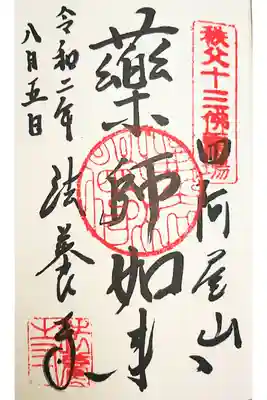 秩父十三佛霊場
四阿屋山
藥師如来
令和二年 法養寺
八月五日